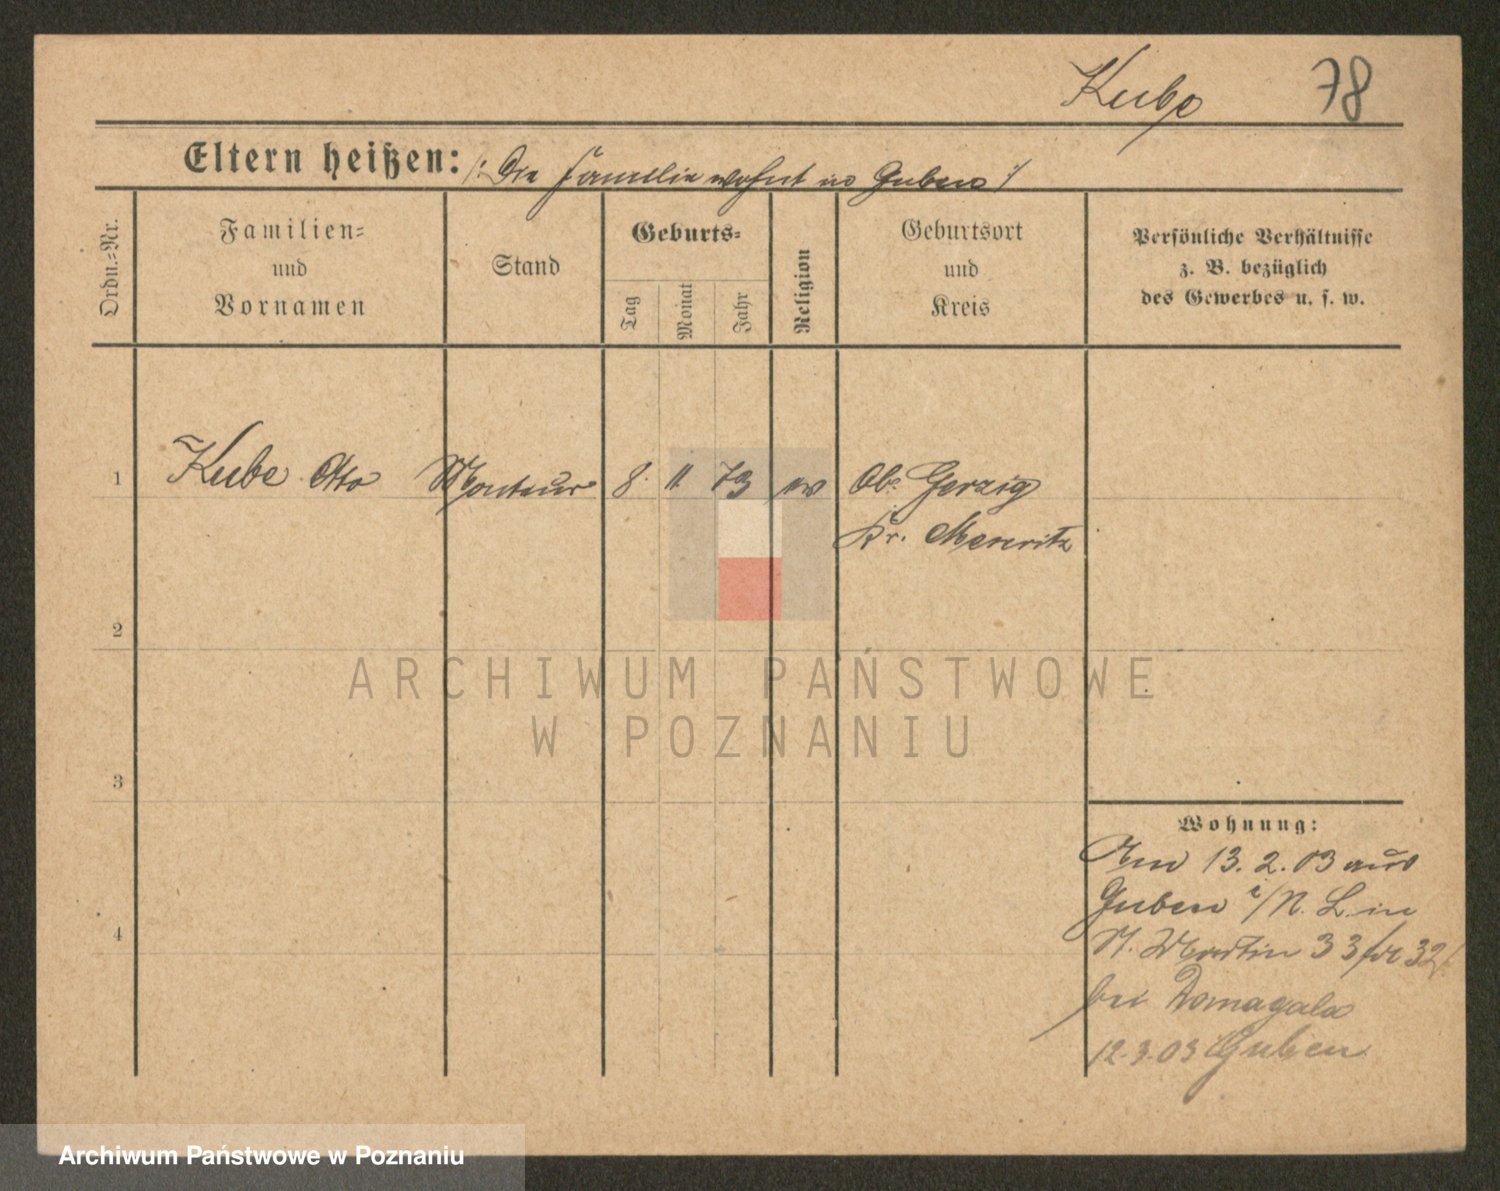 Kube 78
Eltern heißen: /: Die Familie wohnt in Guben :/
Ordn.-Nr.
Familien-
und
Vornamen
Stand
Geburts-
Tag
Monat
Jahr
Religion
Geburtsort
und
Kreis
Persönliche Verhältnisse
z. B. bezüglich
des Gewerbes u. s. w.
1 Kube Otto Monteur 8. 11. 73 ev Ob. Gerzig
Kr. Meseritz
2
3
4
Wohnung:
Am 13.2.03 aus
Guben i/N. L. in
St. Martin 33 32
bei Domagala
12.3.03 Guben
ARCHIWUM PAŃSTWOWE
W POZNANIU
Archiwum Państwowe w Poznaniu